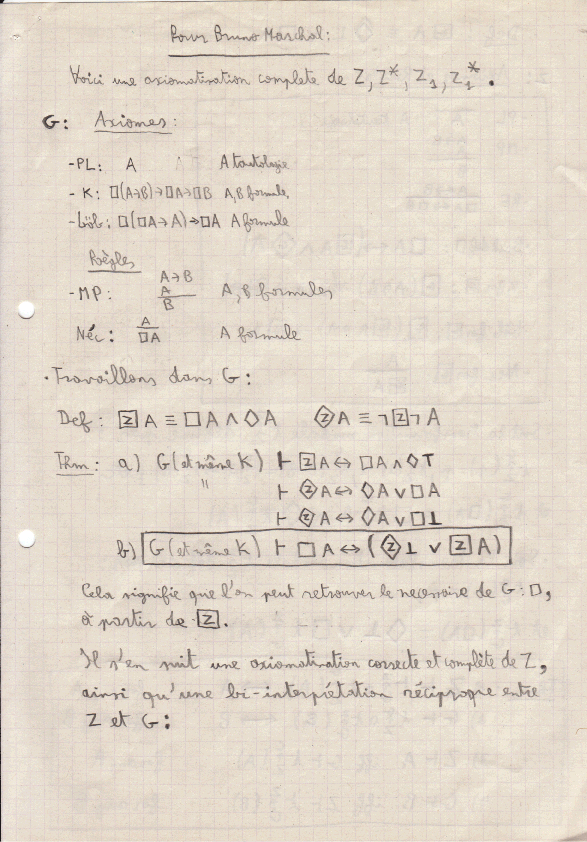 Pour Bruno Marchal:
Voici une axiomatisation complete de Z, Z*, Z₁, Z₁*.
G: Axiomes:
-PL: A A tautologie
- K: □(A→B)→□A→□B A,B formule,
-Löb: □(□A→A)→□A A formule
Règles
-MP: A→B
A
B A,B formules
Néc: A
□A A formule
· Travaillons dans G:
Def: [Z]A ≡ □A ∧ ◇A <Z>A ≡ ¬[Z]¬A
Thm: a) G (et même K) ⊢ [Z]A ↔ □A ∧ ◇T
" ⊢ <Z>A ↔ ◇A ∨ □A
⊢ <Z>A ↔ ◇A ∨ □⊥
b) G (et même K) ⊢ □A ↔ (<Z>⊥ ∨ [Z]A)
Cela signifie que l'on peut retrouver le necessaire de G: □,
à partir de [Z].
Il s'en suit une axiomatisation correcte et complète de Z,
ainsi qu'une bi-interprétation réciproque entre
Z et G: